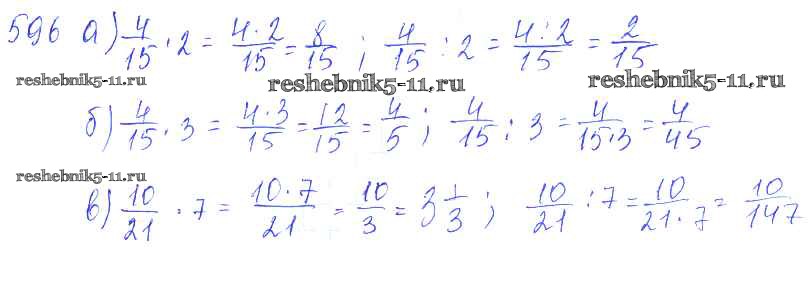 596 а) 4/15 · 2 = 4·2/15 = 8/15 ; 4/15 : 2 = 4:2/15 = 2/15
reshebnik5-11.ru reshebnik5-11.ru reshebnik5-11.ru
б) 4/15 · 3 = 4·3/15 = 12/15 = 4/5 ; 4/15 : 3 = 4/15·3 = 4/45
reshebnik5-11.ru
в) 10/21 · 7 = 10·7/21 = 10/3 = 3 1/3 ; 10/21 : 7 = 10/21·7 = 10/147